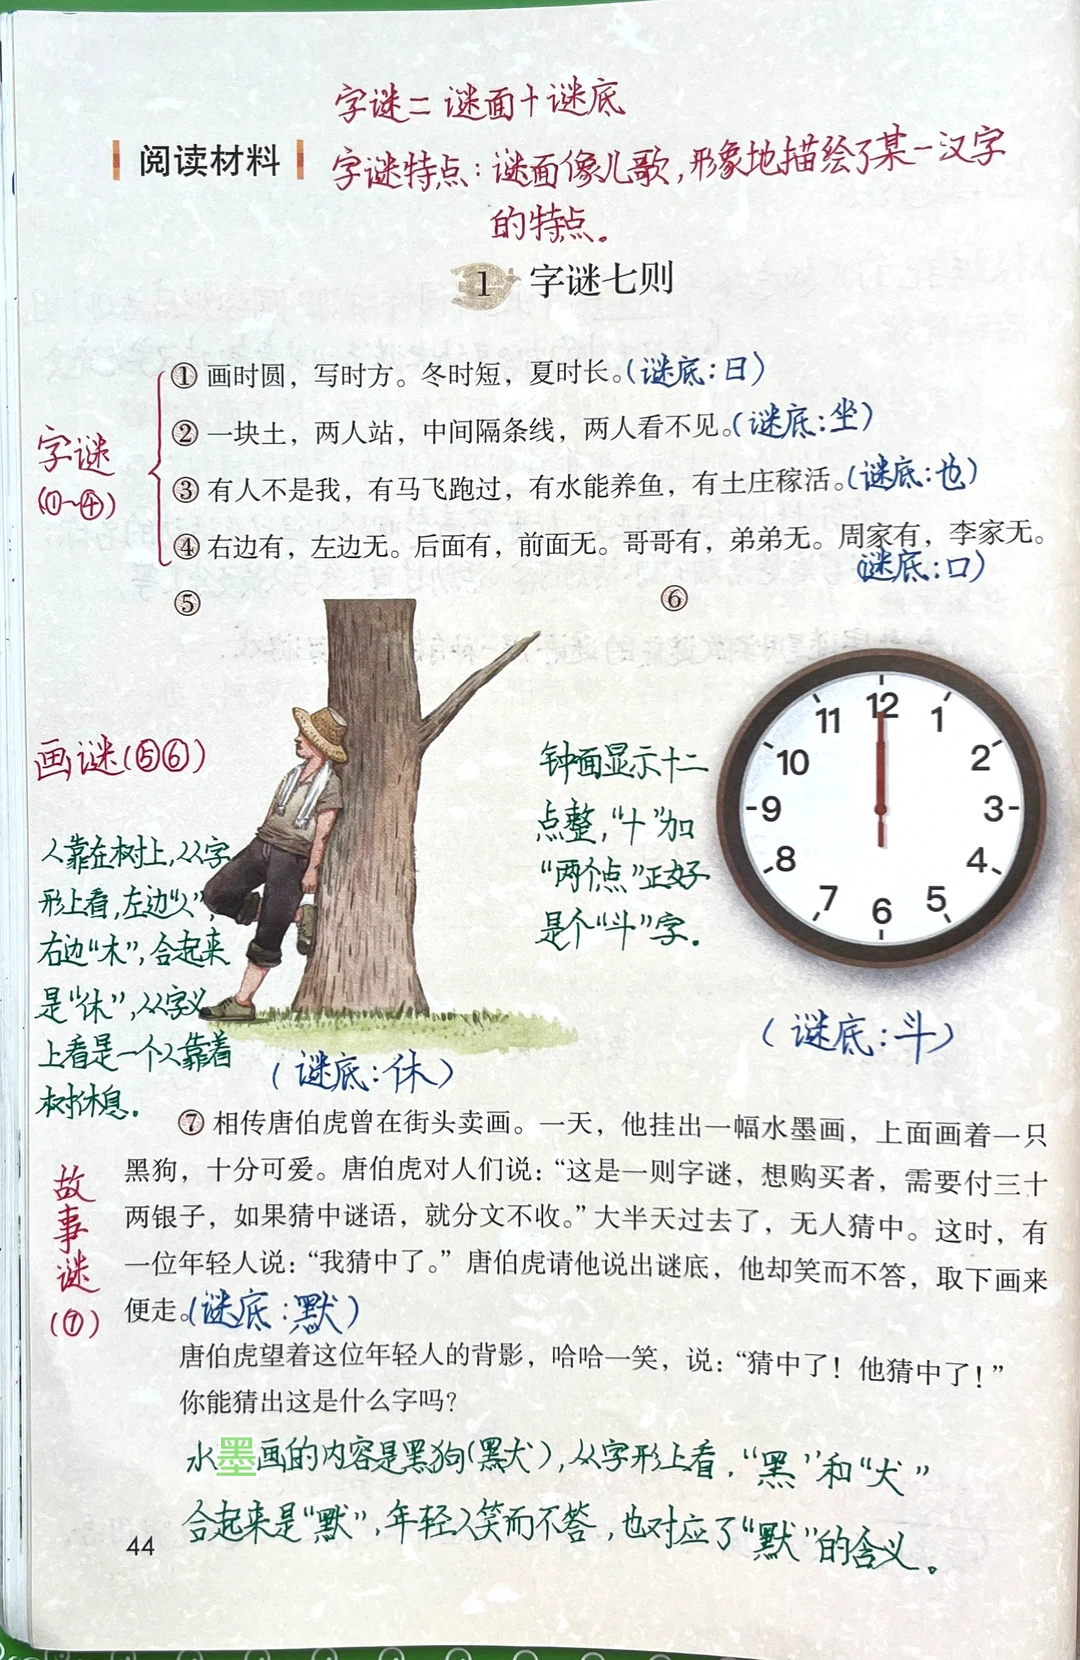 字谜=谜面+谜底
阅读材料
字谜特点:谜面像儿歌,形象地描绘了某一汉字
的特点。
1 字谜七则
字谜
(①~④)
① 画时圆，写时方。冬时短，夏时长。(谜底:日)
② 一块土，两人站，中间隔条线，两人看不见。(谜底:坐)
③ 有人不是我，有马飞跑过，有水能养鱼，有土庄稼活。(谜底:也)
④ 右边有，左边无。后面有，前面无。哥哥有，弟弟无。周家有，李家无。
(谜底:口)
⑤
⑥
画谜(⑤⑥)
人靠在树上,从字
形上看,左边“人”,
右边“木”,合起来
是“休”,从字义
上看是一个人靠着
树休息。
(谜底:休)
钟面显示十二
点整,“十”加
“两个点”正好
是个“斗”字.
12
1
2
3
4
5
6
7
8
9
10
11
(谜底:斗)
故事谜
(⑦)
⑦ 相传唐伯虎曾在街头卖画。一天，他挂出一幅水墨画，上面画着一只
黑狗，十分可爱。唐伯虎对人们说：“这是一则字谜，想购买者，需要付三十
两银子，如果猜中谜语，就分文不收。”大半天过去了，无人猜中。这时，有
一位年轻人说：“我猜中了。”唐伯虎请他说出谜底，他却笑而不答，取下画来
便走。(谜底:默)
唐伯虎望着这位年轻人的背影，哈哈一笑，说：“猜中了！他猜中了！”
你能猜出这是什么字吗？
水墨画的内容是黑狗(黑犬),从字形上看,“黑”和“犬”
合起来是“默”,年轻人笑而不答,也对应了“默”的含义。
44